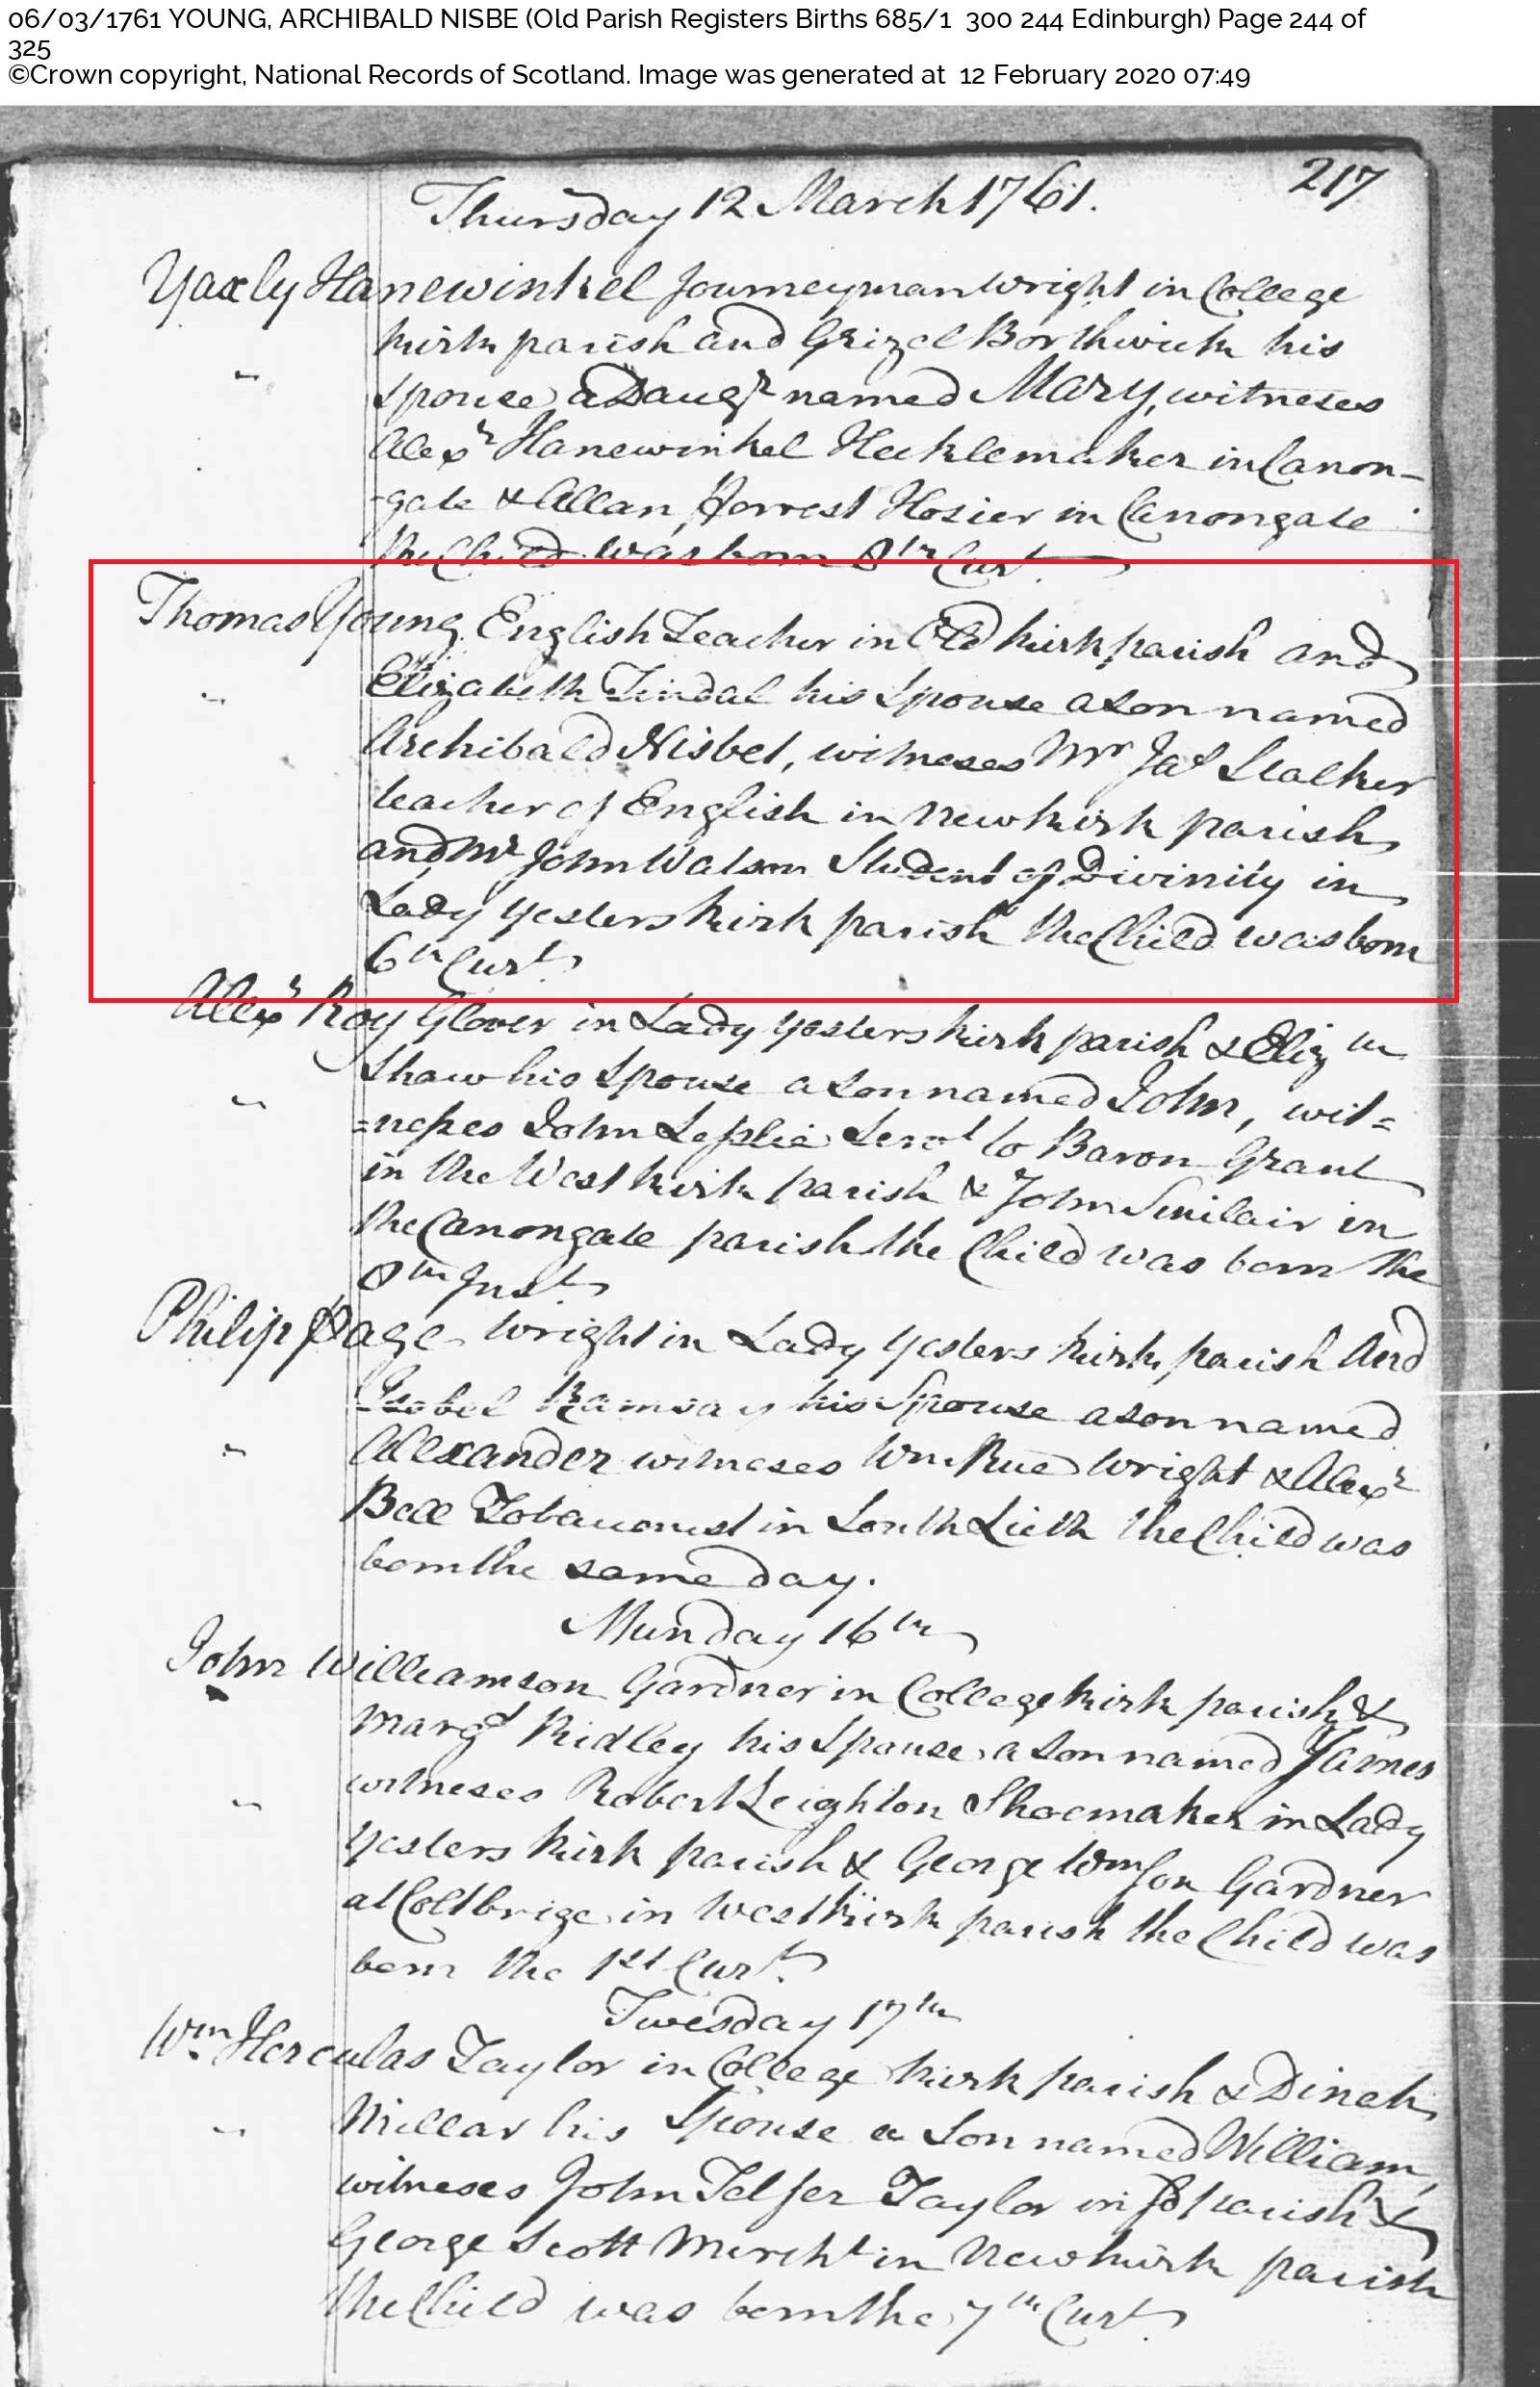 06/03/1761 YOUNG, ARCHIBALD NISBE (Old Parish Registers Births 685/1 300 244 Edinburgh) Page 244 of
325
©Crown copyright, National Records of Scotland. Image was generated at 12 February 2020 07:49
217
Thursday 12 March 1761.
Yaxly Hanewinkel Journeyman wright in College
kirk parish and Grizel Borthwick his
spouse a Daugr named Mary, witneses
Alexr Hanewinkel Hecklemaker in Canon-
-gate & Allan Forrest Hosier in Canongate
the Child was born 8th Curt.
Thomas Young English Teacher in Old kirk parish and
Elizabeth Tindal his Spouse a son named
Archibald Nisbet, witneses Mr Jas Stalker
teacher of English in New kirk parish
and Mr John Watson Student of Divinity in
Lady Yesters kirk parish the Child was born
6th Curt.
Alexr Roy Glover in Lady Yesters kirk parish & Eliz th
Shaw his Spouse a son named John, wit=
=neſses John Leſslie Servt to Baron Grant
in the West kirk parish & John Sinclair in
the Canongate parish the Child was born the
8th Inst.
Philip Page wright in Lady Yesters kirk parish And
Isobel Ramsay his Spouse a son named
Alexander witneses Wm Rue Wright & Alexr
Bell Tobaconist in South Lieth the Child was
born the same day.
Munday 16th
John Williamson Gardner in College kirk parish &
Margt Ridley his Spouse a son named James
witneses Robert Leighton Shoemaker in Lady
Yesters kirk parish & George Wmson Gardner
at Coltbrige in West kirk parish the Child was
born the 1st Curt.
Tuesday 17th
Wm Herculas Taylor in College kirk parish & Dinah
Millar his Spouse a Son named William,
witneses John Telfer Taylor in sd parish &
George Scott Mercht in New kirk parish
the Child was born the 7th Curt.